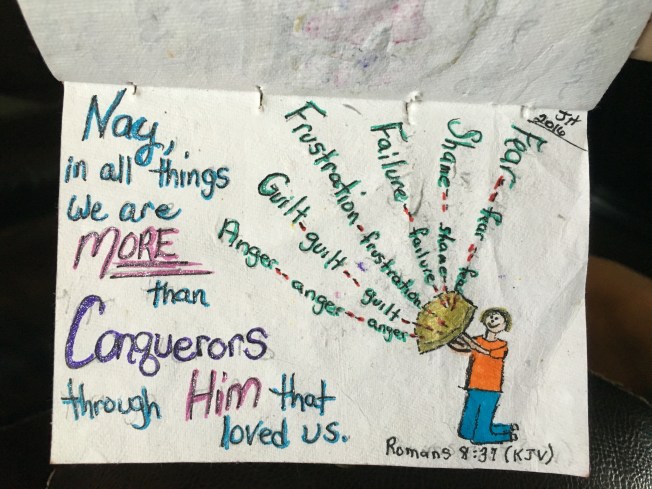 Nay,
in all things
we are
MORE
than
Conquerors
through Him that
loved us.
Anger -- anger -- anger
Guilt - guilt -- guilt -
Frustration - frustration
Failure -- failure
Shame -- shame --
Fear -- fear -- fe
JH
2016
Romans 8:37 (KJV)